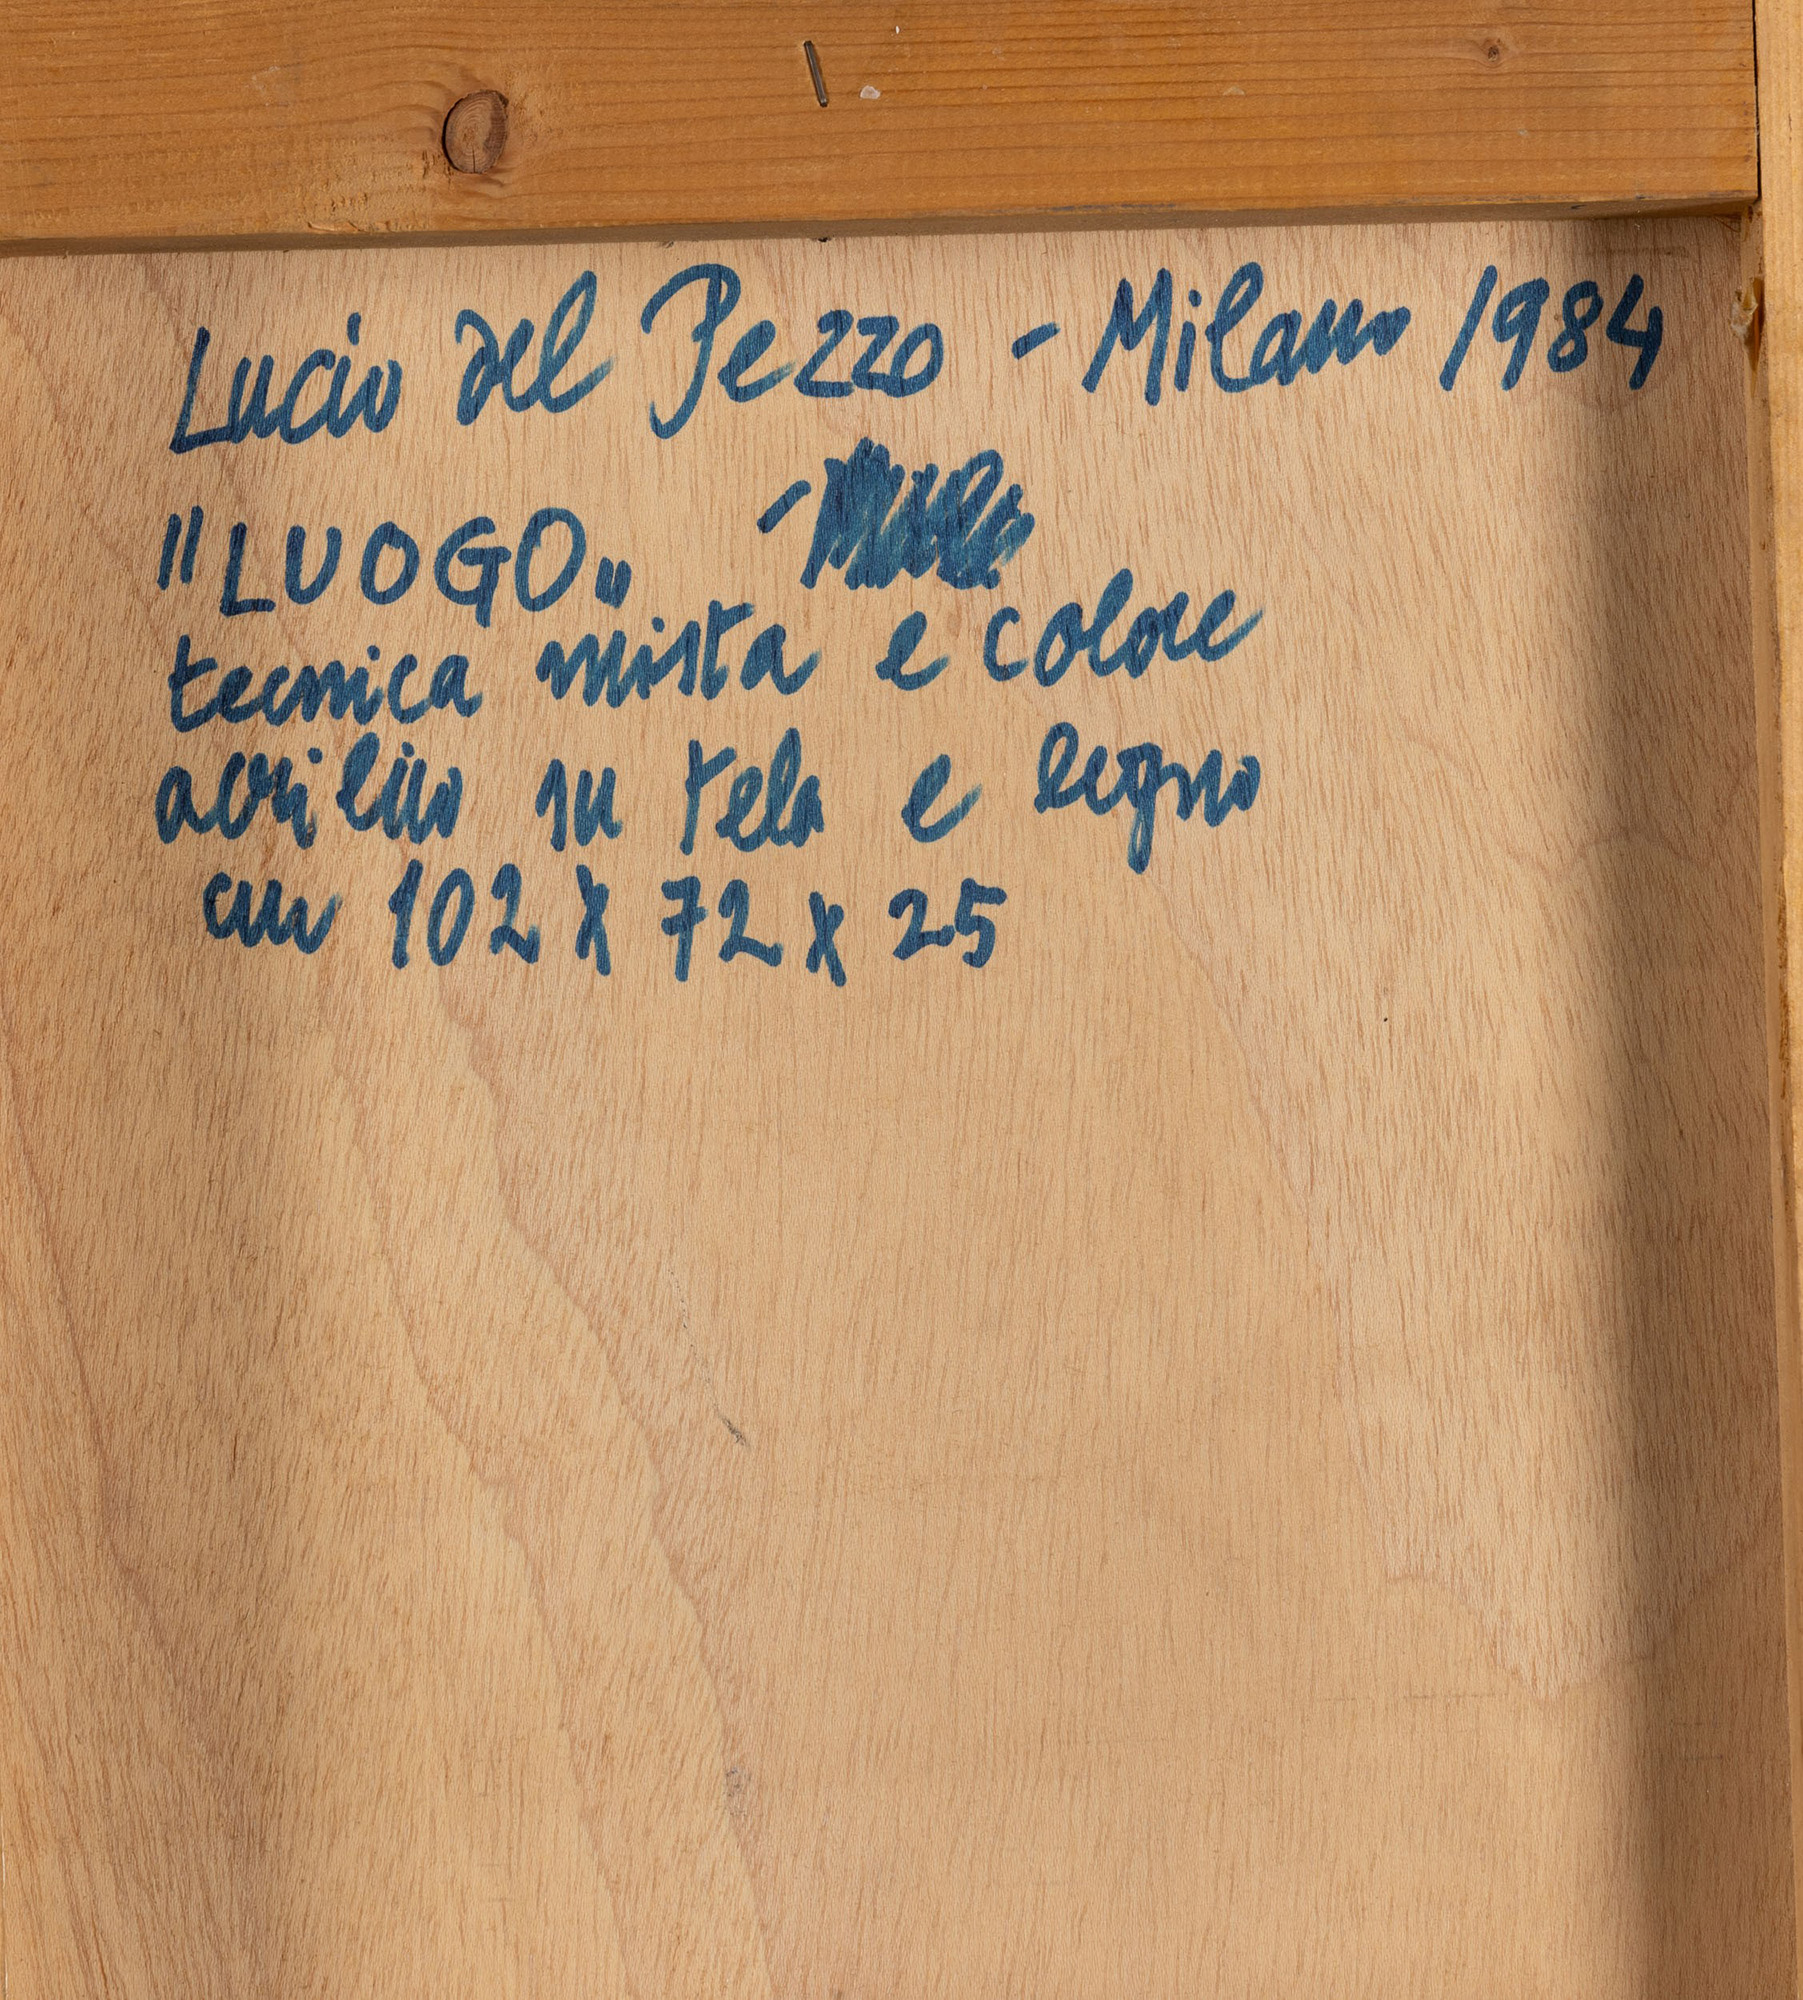 Lucio del Pezzo - Milano 1984
"LUOGO„ -
tecnica mista e colore
acrilico su tela e legno
cm 102 x 72 x 25